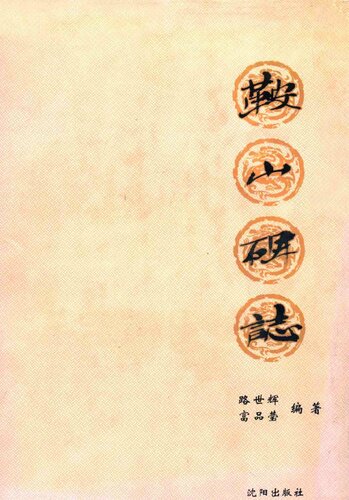 鞍山碑誌
路世辉
富品莹 编著
沈阳出版社